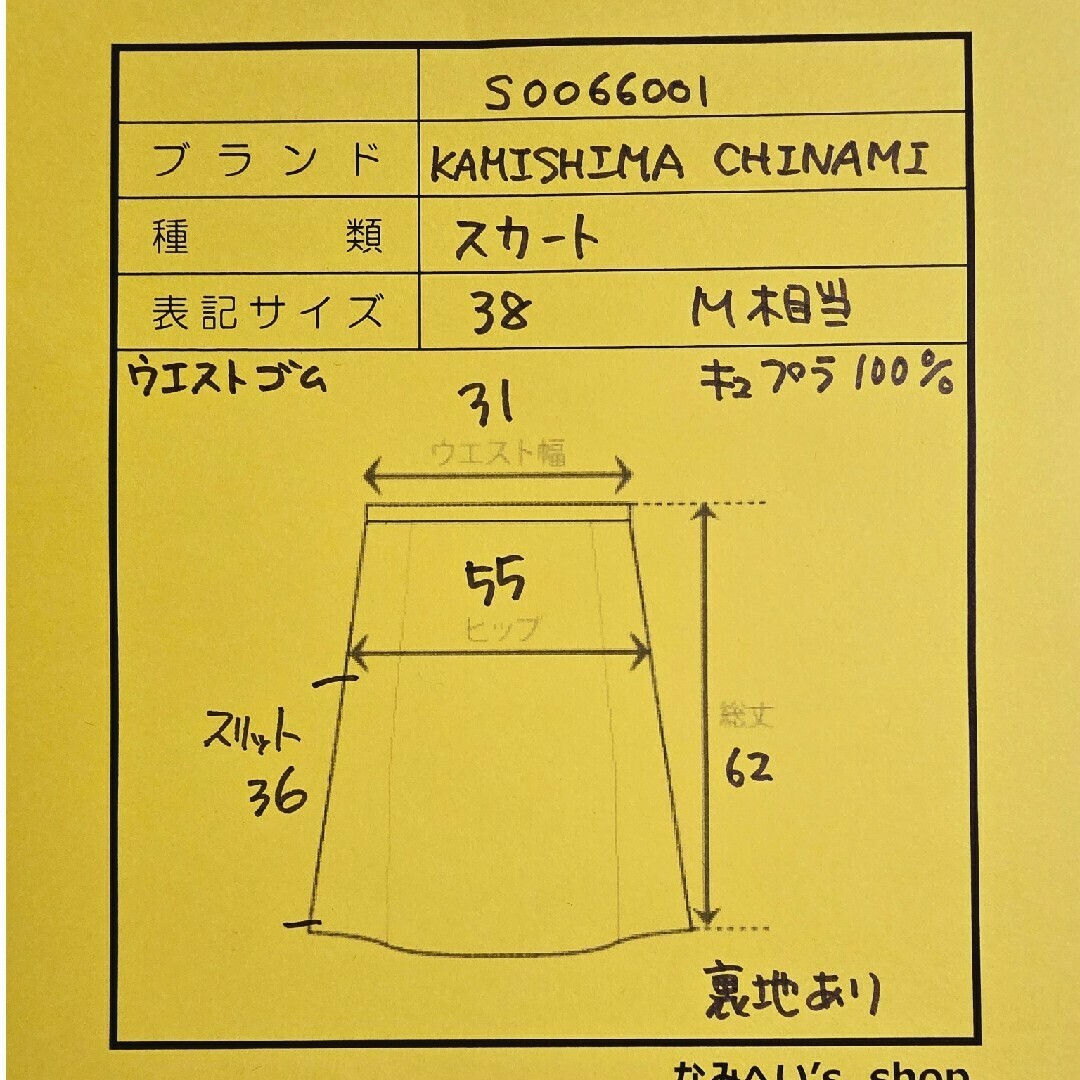 S0066001
ブランド KAMISHIMA CHINAMI
種類 スカート
表記サイズ 38 M相当
ウエストゴム キュプラ100%
31
ウエスト幅
55
ヒップ
スリット
36
総丈
62
裏地あり
なみへい's shop